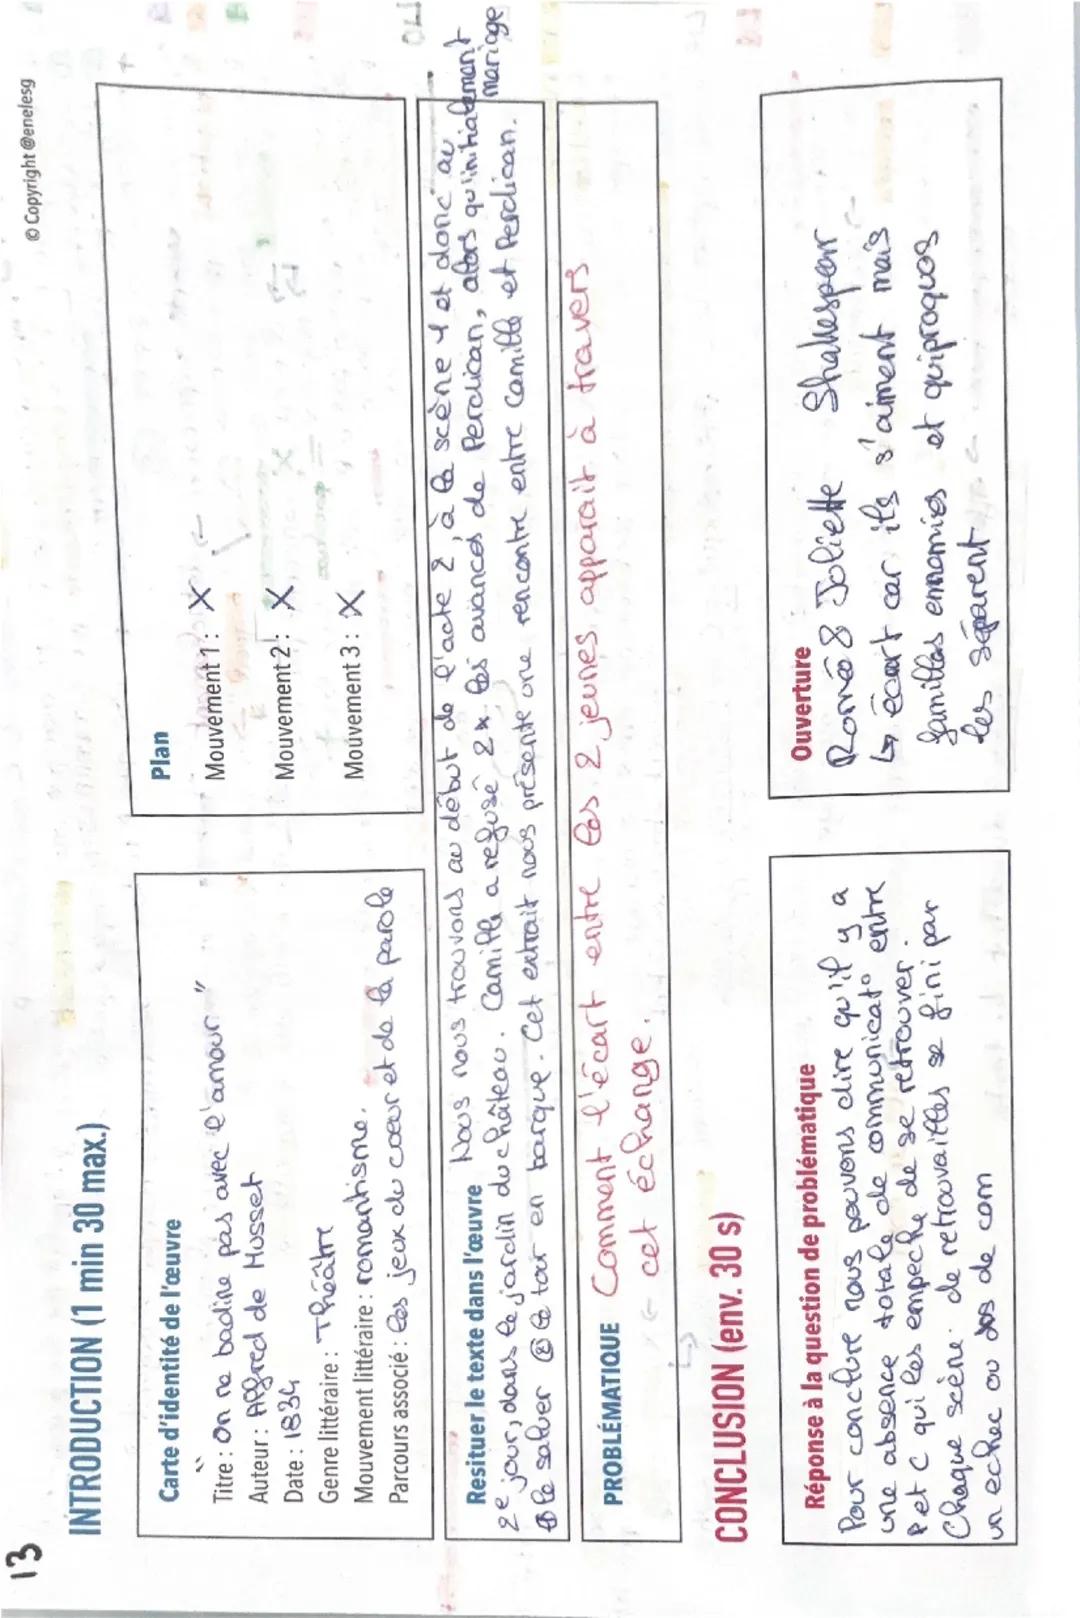 13
© Copyright @enelesg
INTRODUCTION (1 min 30 max.)
Carte d'identité de l'œuvre
Titre : "On ne badine pas avec l'amour"
Auteur : Alfred de Musset
Date : 1834
Genre littéraire : Théâtre
Mouvement littéraire : romantisme.
Parcours associé : les jeux du cœur et de la parole
Plan
Mouvement 1 : X
Mouvement 2 : X
Mouvement 3 : X
Resituer le texte dans l'œuvre Nous nous trouvons au début de l'acte 2, à la scène 1 et donc au
2e jour, dans le jardin du château. Camille a refusé 2x les avances de Perdican, alors qu'initialement
le saluer le tour en barque. Cet extrait nous présente une rencontre entre Camille et Perdican. mariage
PROBLÉMATIQUE Comment l'écart entre les 2 jeunes apparait à travers
cet échange.
CONCLUSION (env. 30 s)
Réponse à la question de problématique
Pour conclure nous pouvons dire qu'il y a
une absence totale de communicat° entre
P et C qui les empeche de se retrouver.
Chaque scène de retrouvailles se fini par
un echec au dos de com
Ouverture
Roméo & Joliette Shakespear
↳ écart car ils s'aiment mais
familles ennamies et quiproquos
les séparent